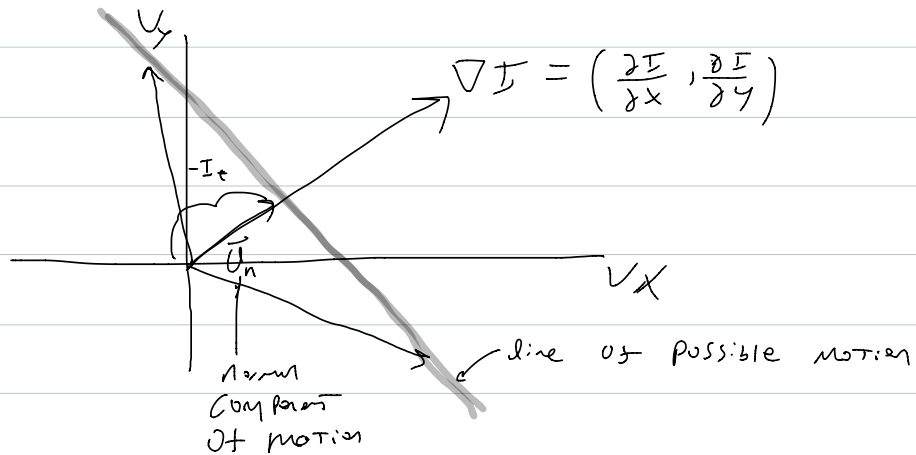 Vy
∇I = (∂I/∂x, ∂I/∂y)
-Iₜ
U⃗n
Vx
line of possible motion
normal
component
of motion